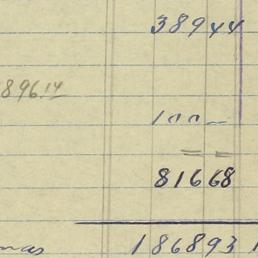 38944
896.14
100 —
81668
186893